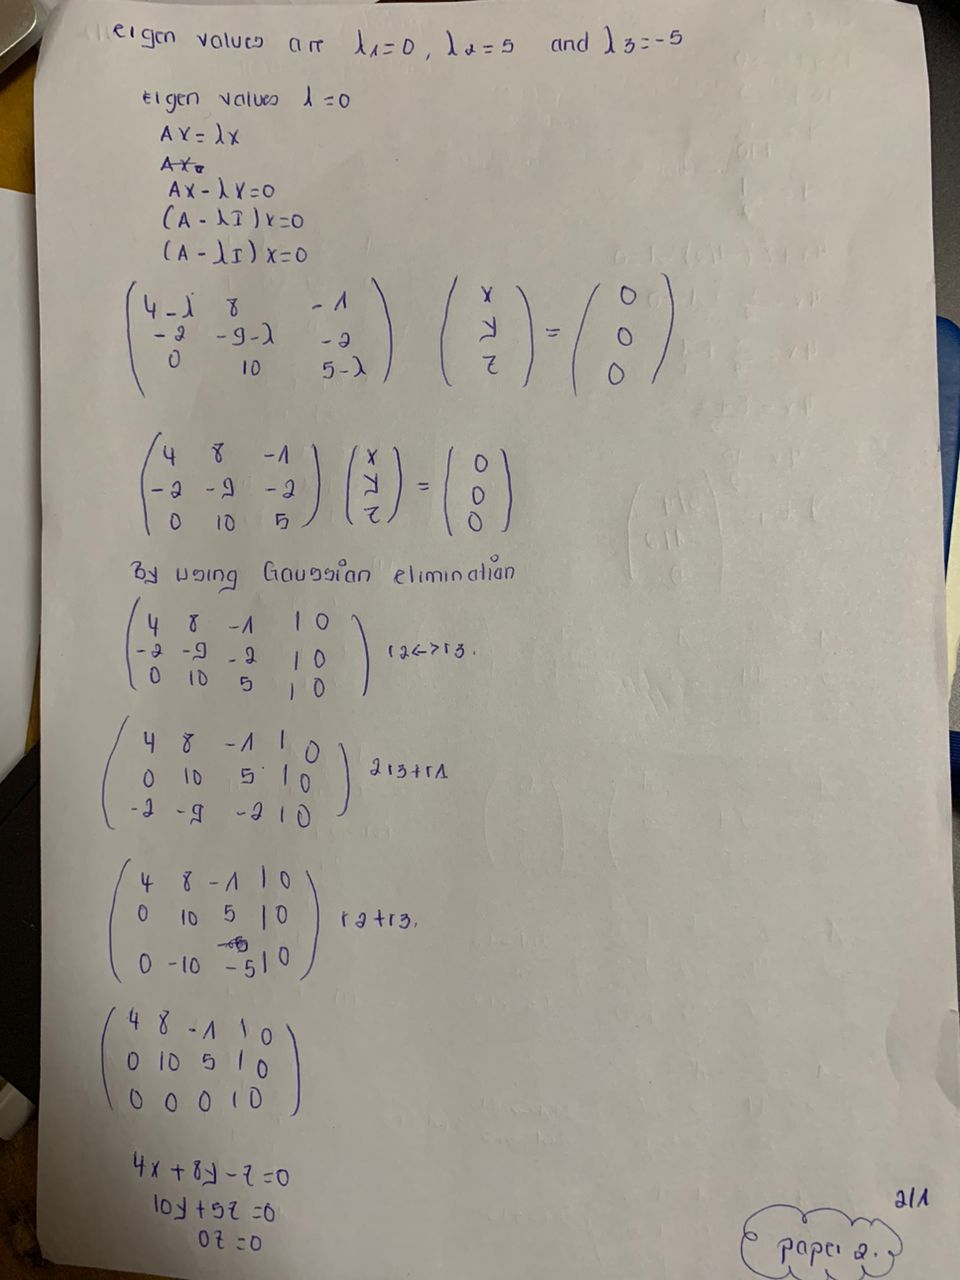 eigen values are λ1=0, λ2=5 and λ3=-5
Eigen values λ=0
AX=λX
AX0
AX-λX=0
(A-λI)X=0
(A-λI)X=0
(4-λ 8 -1) (x) = (0)
(-2 -9-λ -2) (y) (0)
(0 10 5-λ) (z) (0)
(4 8 -1) (x) = (0)
(-2 -9 -2) (y) (0)
(0 10 5) (z) (0)
By using Gaussian elimination
4 8 -1 | 0
-2 -9 -2 | 0 r2<->r3.
0 10 5 | 0
4 8 -1 | 0
0 10 5 | 0 2r3+r1
-2 -9 -2 | 0
4 8 -1 | 0
0 10 5 | 0 r2+r3.
0 -10 -5 | 0
4 8 -1 | 0
0 10 5 | 0
0 0 0 | 0
4x+8y-z=0
10y+5z=0
0z=0
2/1
paper 2.